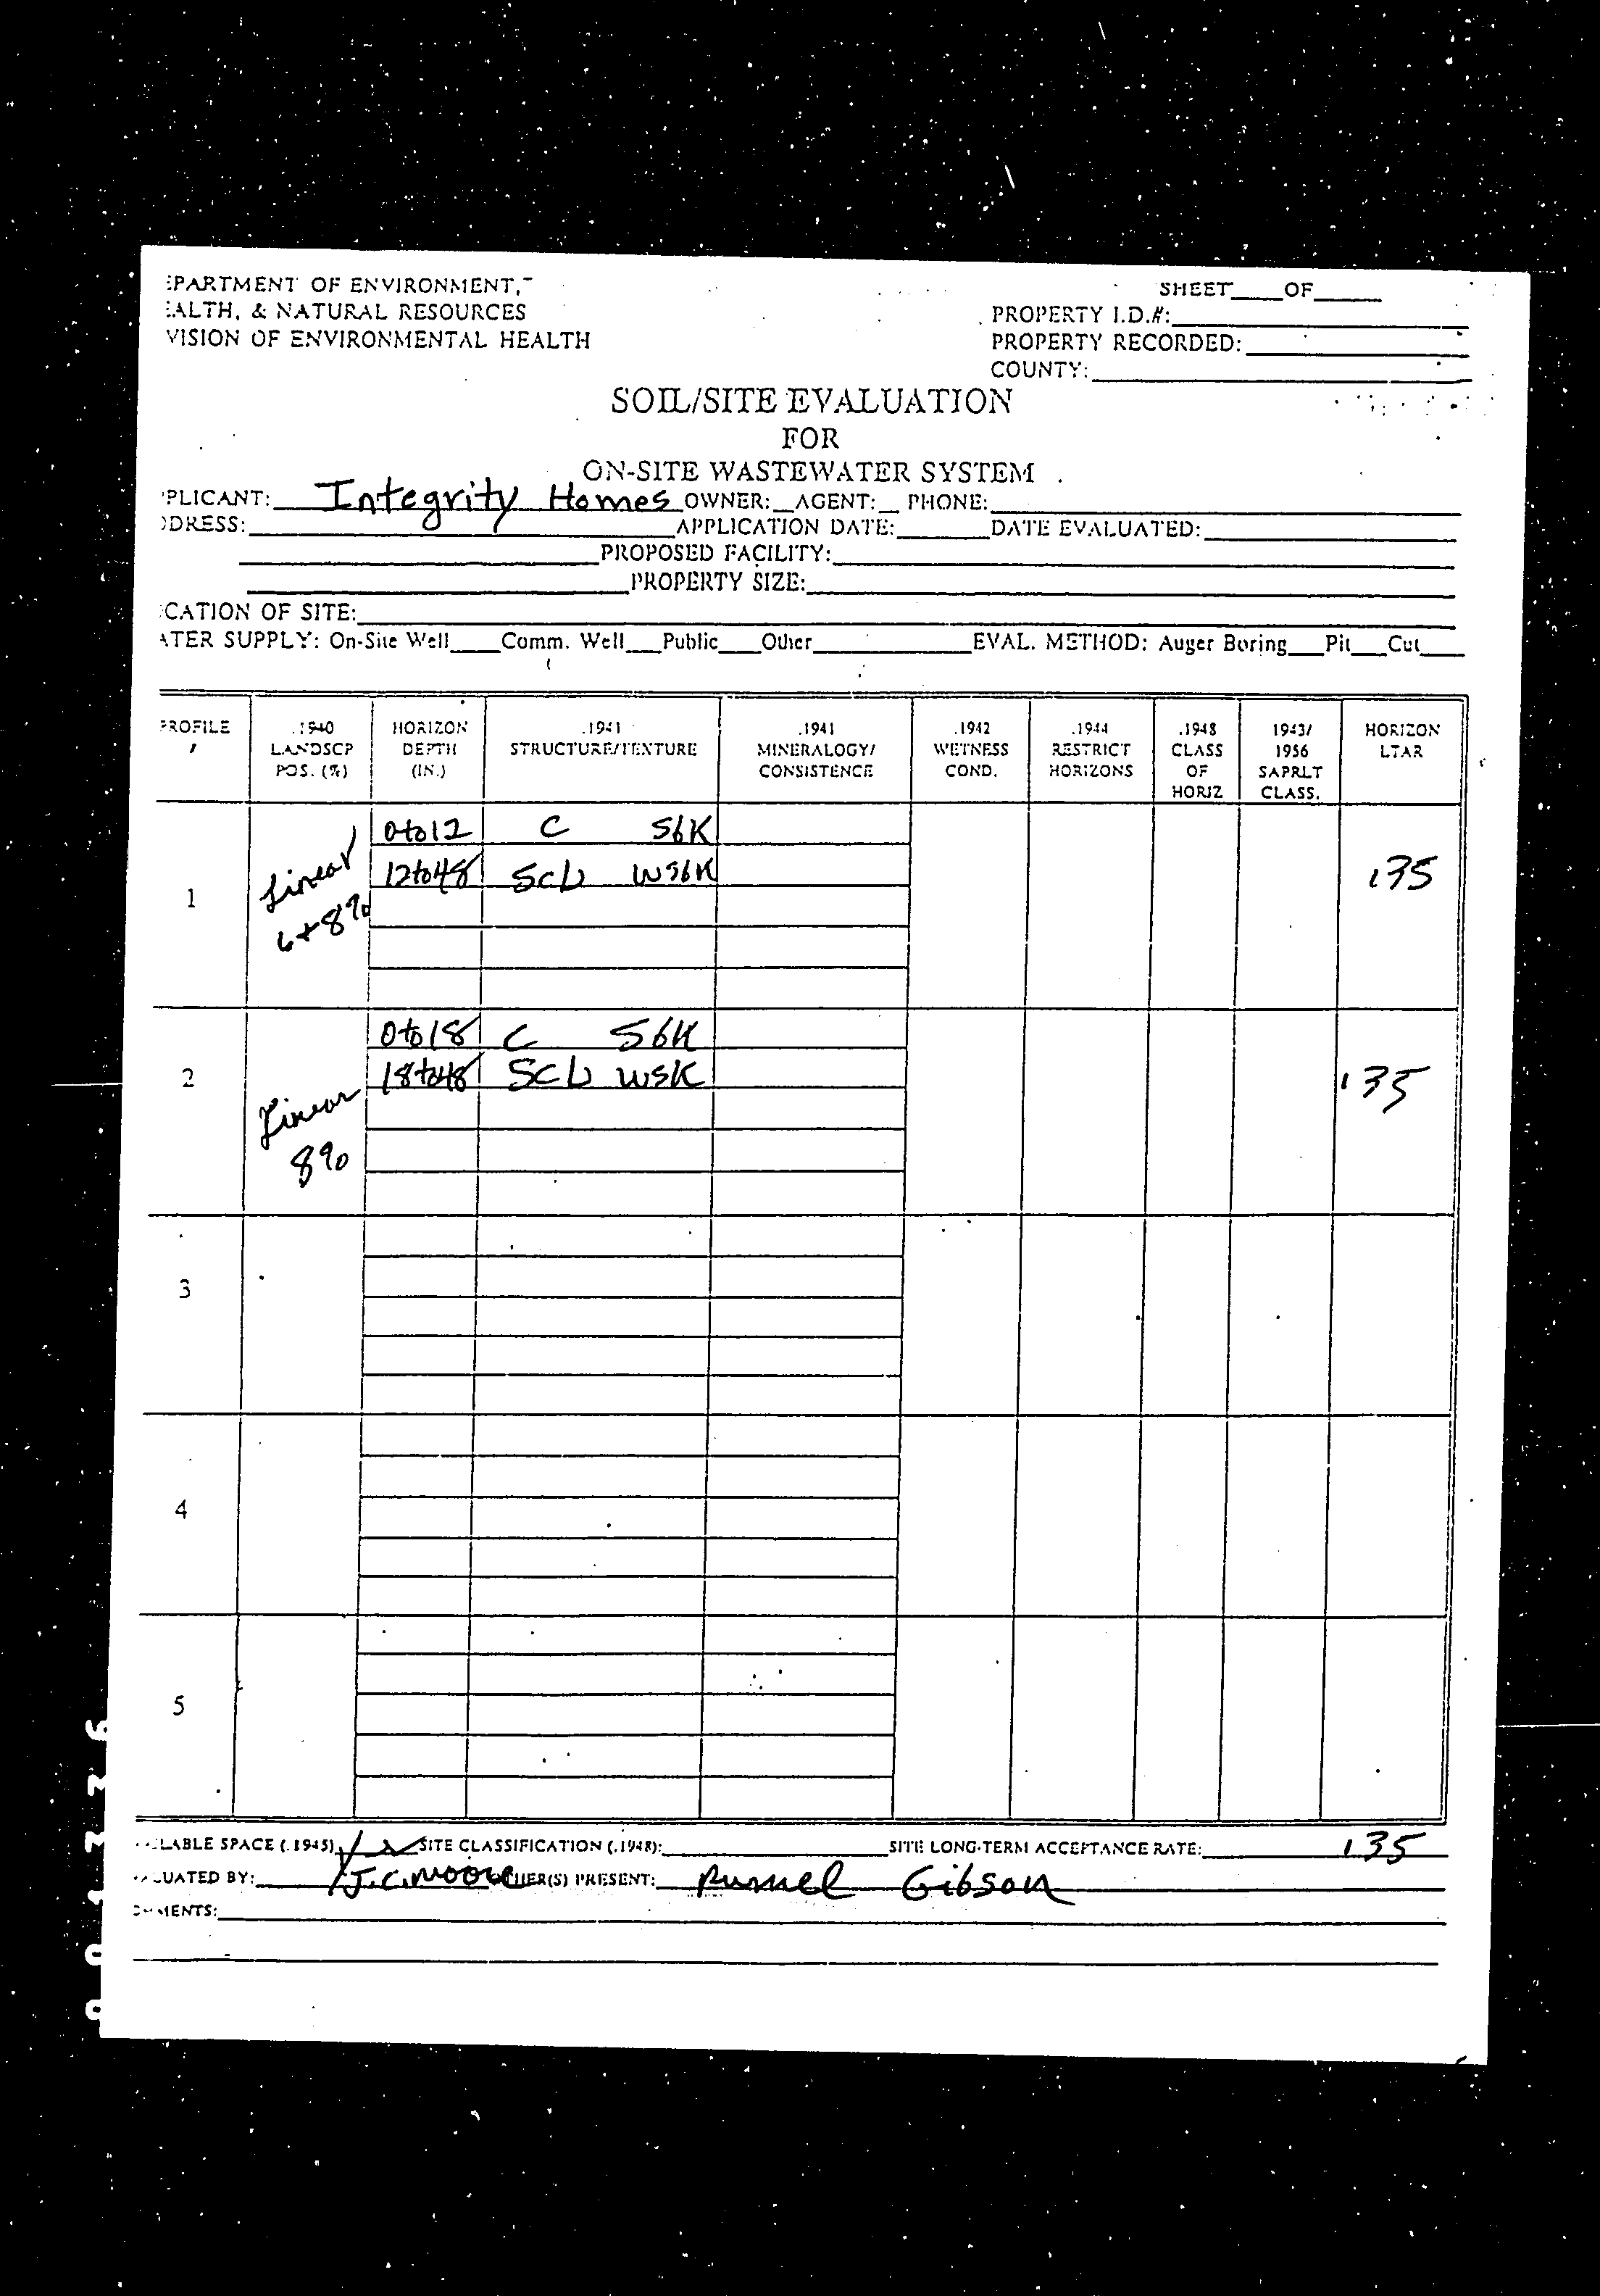 EPARTMENT OF ENVIRONMENT, SHEET____OF____
EALTH, & NATURAL RESOURCES PROPERTY I.D.#:
VISION OF ENVIRONMENTAL HEALTH PROPERTY RECORDED:
COUNTY:
SOIL/SITE EVALUATION
FOR
ON-SITE WASTEWATER SYSTEM
PLICANT: Integrity Homes OWNER:__AGENT:__ PHONE:
DDRESS: APPLICATION DATE: DATE EVALUATED:
PROPOSED FACILITY:
PROPERTY SIZE:
CATION OF SITE:
ATER SUPPLY: On-Site Well____Comm. Well___Public___Other EVAL. METHOD: Auger Boring___Pit___Cut___
PROFILE .1940 HORIZON .1941 .1941 .1942 .1944 .1948 .1943/ HORIZON
# LANDSCP DEPTH STRUCTURE/TEXTURE MINERALOGY/ WETNESS RESTRICT CLASS 1956 LTAR
POS. (%) (IN.) CONSISTENCE COND. HORIZONS OF SAPRLT
HORIZ CLASS.
0to12 C SbK
1 Linear 12to48 SCL WSbK .35
6+8%
0to18 C SbK
2 18to48 SCL WSK .35
Linear
8%
3
4
5
LABLE SPACE (.1945) SITE CLASSIFICATION (.1948): SITE LONG-TERM ACCEPTANCE RATE: .35
LUATED BY: J.C. Moore HER(S) PRESENT: Gibson
MMENTS: